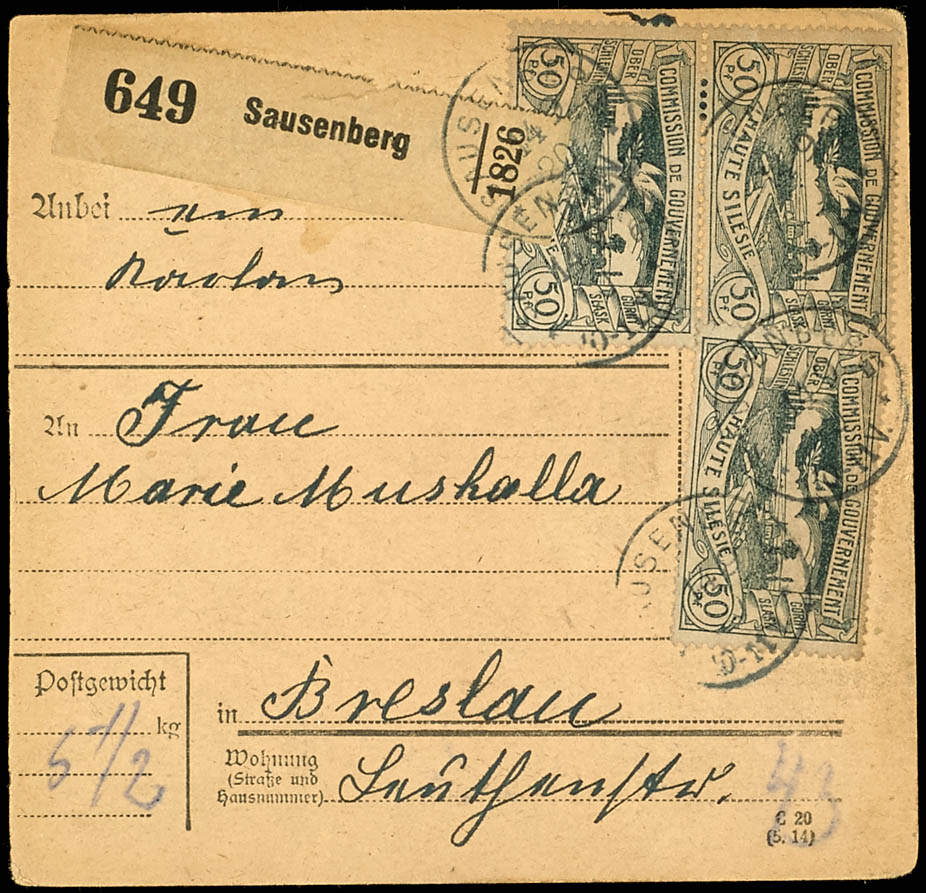 649 Sausenberg
1826
Anbei ein
An Frau
Marie Mushalla
Postgewicht
5 1/2 kg
in Breslau
Wohnung
(Straße und
Hausnummer)
Leuthenstr.
C 20
(5. 14)
COMMISSION DE GOUVERNEMENT
OBER SCHLESIEN
HAUTE SILESIE
GORNY ŚLĄSK
50 Pf
50 Pf
COMMISSION DE GOUVERNEMENT
OBER SCHLESIEN
HAUTE SILESIE
GORNY ŚLĄSK
50 Pf
50 Pf
COMMISSION DE GOUVERNEMENT
OBER SCHLESIEN
HAUTE SILESIE
GORNY ŚLĄSK
50 Pf
50 Pf